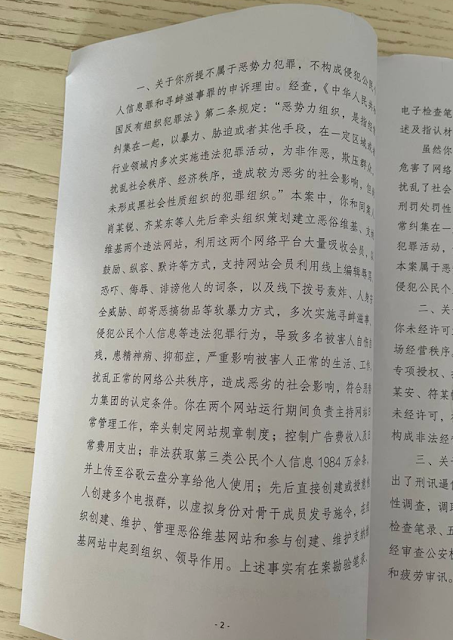 一、关于你所提不属于恶势力犯罪，不构成侵犯公民个
人信息罪和寻衅滋事罪的申诉理由。经查，《中华人民共和
国反有组织犯罪法》第二条规定：“恶势力组织，是指经常
纠集在一起，以暴力、胁迫或者其他手段，在一定区域或者
行业领域内多次实施违法犯罪活动，为非作恶，欺压群众，
扰乱社会秩序、经济秩序，造成较为恶劣的社会影响，但尚
未形成黑社会性质组织的犯罪组织。”本案中，你和同案人
肖某锐、齐某东等人先后牵头组织策划建立恶俗维基、支纳
维基两个违法网站，利用这两个网络平台大量吸收会员，以
鼓励、纵容、默许等方式，支持网站会员利用线上编辑辱骂、
恐吓、侮辱、诽谤他人的词条，以及线下拨号轰炸、人身安
全威胁、邮寄恶搞物品等软暴力方式，多次实施寻衅滋事、
侵犯公民个人信息等违法犯罪行为，导致多名被害人自伤自
残，患精神病、抑郁症，严重影响被害人正常的生活、工作，
扰乱正常的网络公共秩序，造成恶劣的社会影响，符合恶势
力集团的认定条件。你在两个网站运行期间负责主持网站日
常管理工作，牵头制定网站规章制度；控制广告费收入及日
常费用支出；非法获取第三类公民个人信息1984万余条，
并上传至谷歌云盘分享给他人使用；先后直接创建或授意他
人创建多个电报群，以虚拟身份对骨干成员发号施令，在组
织创建、维护、管理恶俗维基网站和参与创建、维护支纳维
基网站中起到组织、领导作用。上述事实有在案勘验笔录、
- 2 -
电子检查笔
述及指认材
虽然你
危害了网络
扰乱了社会
刑罚处罚性
常纠集在一
犯罪活动，
本案属于恶
侵犯公民个
二、关
你未经许可
场经营秩序
专项授权、
某安、符某
未经许可，
构成非法经
三、关
出了刑讯逼
性调查，调取
检查笔录、五
经审查公安机
和疲劳审讯。